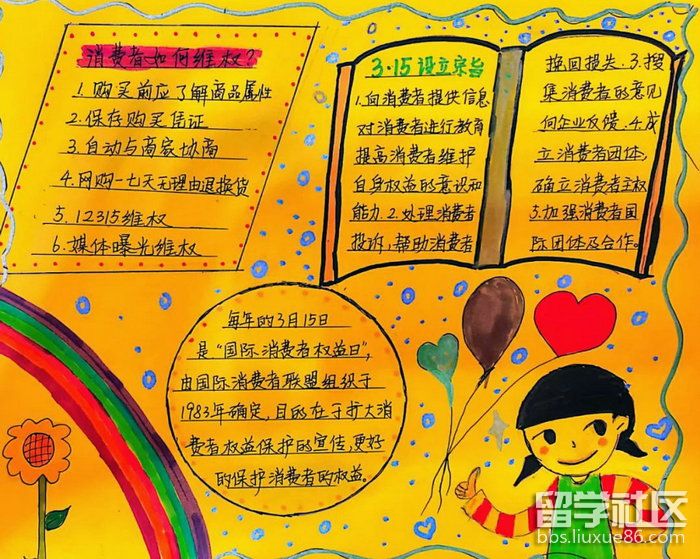 消费者如何维权？
1.购买前应了解商品属性
2.保存购买凭证
3.自动与商家协商
4.网购一七天无理由退换货
5.12315维权
6.媒体曝光维权
3·15设立宗旨
1.向消费者提供信息
对消费者进行教育
提高消费者维护
自身权益的意识和
能力.2.处理消费者
投诉,帮助消费者
挽回损失.3.搜
集消费者的意见
向企业反馈.4.成
立消费者团体,
确立消费者主权
5.加强消费者国
际团体及合作。
每年的3月15日
是“国际消费者权益日”,
由国际消费者联盟组织于
1983年确定,目的在于扩大消
费者权益保护的宣传,更好
的保护消费者的权益.
留学社区
bbs.liuxue86.com